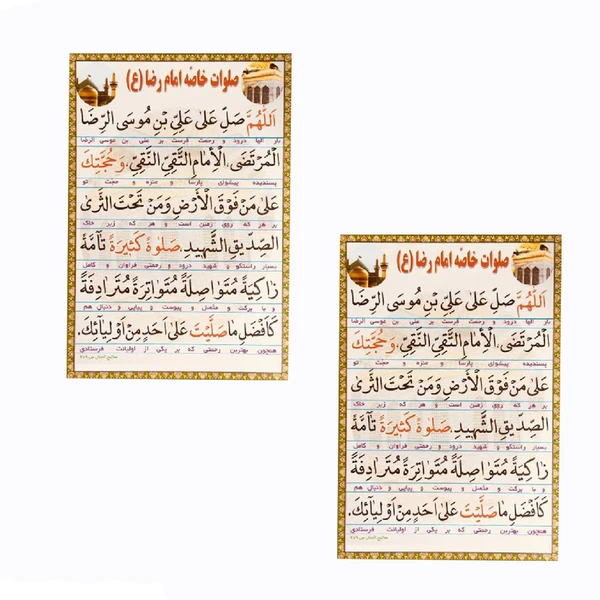 صلوات خاصه امام رضا (ع)
اَللّهُمَّ صَلِّ عَلى عَلِيِّ بْنِ مُوسَى الرِّضَا
بار الها درود و رحمت فرست بر علی بن موسی الرضا
الْمُرْتَضَى، الْإِمَامِ التَّقِيِّ النَّقِيِّ، وَ حُجَّتِكَ
پسندیده پیشوای پارسا و منزه و حجت تو
عَلىٰ مَنْ فَوْقَ الْأَرْضِ وَ مَنْ تَحْتَ الثَّرىٰ
بر هر که روی زمین است و هر که زیر خاک
الصِّدّيقِ الشَّهيدِ، صَلوٰةً كَثيرَةً تٰآمَّةً
بسیار راستگو و شهید درود و رحمتی فراوان و کامل
زٰاكِيَةً مُتَوٰاصِلَةً مُتَوٰاتِرَةً مُتَرٰادِفَةً
و با برکت و متصل و پیوست و پیاپی و دنبال هم
كَأَفْضَلِ مٰا صَلَّيْتَ عَلىٰ أَحَدٍ مِنْ أَوْلِيٰائِكَ.
همچون بهترین رحمتی که بر یکی از اولیائت فرستادی
صلوات خاصه امام رضا (ع)
اَللّهُمَّ صَلِّ عَلى عَلِيِّ بْنِ مُوسَى الرِّضَا
بار الها درود و رحمت فرست بر علی بن موسی الرضا
الْمُرْتَضَى، الْإِمَامِ التَّقِيِّ النَّقِيِّ، وَ حُجَّتِكَ
پسندیده پیشوای پارسا و منزه و حجت تو
عَلىٰ مَنْ فَوْقَ الْأَرْضِ وَ مَنْ تَحْتَ الثَّرىٰ
بر هر که روی زمین است و هر که زیر خاک
الصِّدّيقِ الشَّهيدِ، صَلوٰةً كَثيرَةً تٰآمَّةً
بسیار راستگو و شهید درود و رحمتی فراوان و کامل
زٰاكِيَةً مُتَوٰاصِلَةً مُتَوٰاتِرَةً مُتَرٰادِفَةً
و با برکت و متصل و پیوست و پیاپی و دنبال هم
كَأَفْضَلِ مٰا صَلَّيْتَ عَلىٰ أَحَدٍ مِنْ أَوْلِيٰائِكَ.
همچون بهترین رحمتی که بر یکی از اولیائت فرستادی